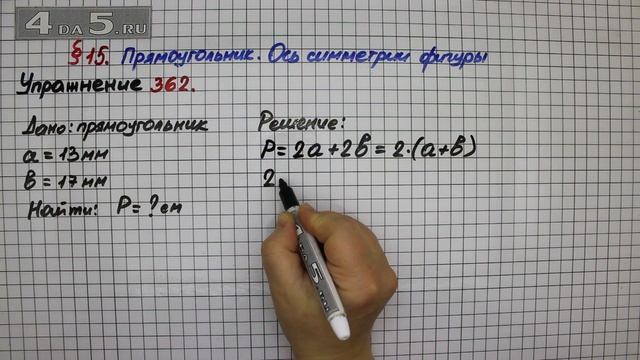 4 DA 5.RU
§ 15. Прямоугольник. Ось симметрии фигуры
Упражнение 362.
Дано: прямоугольник
a = 13 мм
b = 17 мм
Найти: P = ? см
Решение:
P = 2a + 2b = 2·(a+b)
2